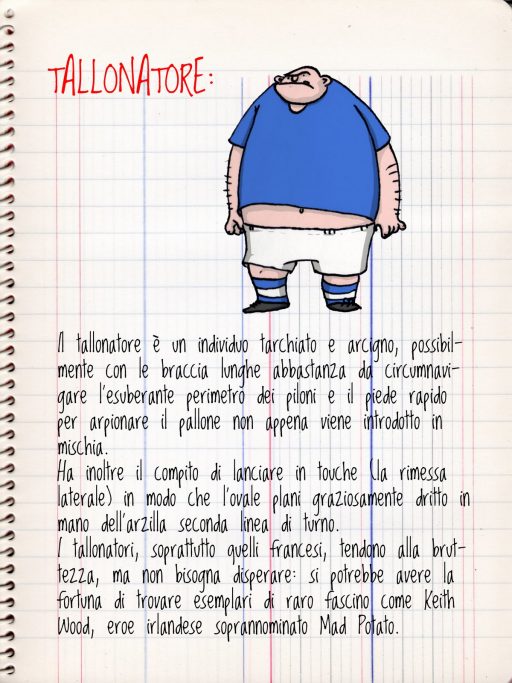 TALLONATORE:
Il tallonatore è un individuo tarchiato e arcigno, possibil-
mente con le braccia lunghe abbastanza da circumnavi-
gare l'esuberante perimetro dei piloni e il piede rapido
per arpionare il pallone non appena viene introdotto in
mischia.
Ha inoltre il compito di lanciare in touche (la rimessa
laterale) in modo che l'ovale plani graziosamente dritto in
mano dell'arzilla seconda linea di turno.
I tallonatori, soprattutto quelli francesi, tendono alla brut-
tezza, ma non bisogna disperare: si potrebbe avere la
fortuna di trovare esemplari di raro fascino come Keith
Wood, eroe irlandese soprannominato Mad Potato.